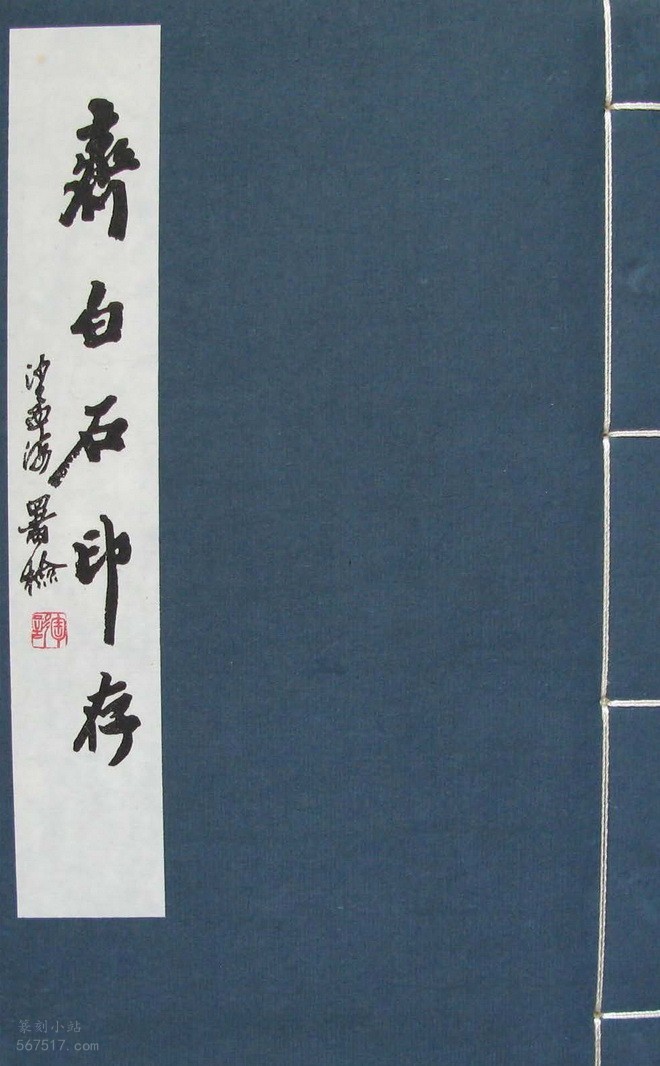 齊白石印存
沙孟海署檢
篆刻小站
567517.com